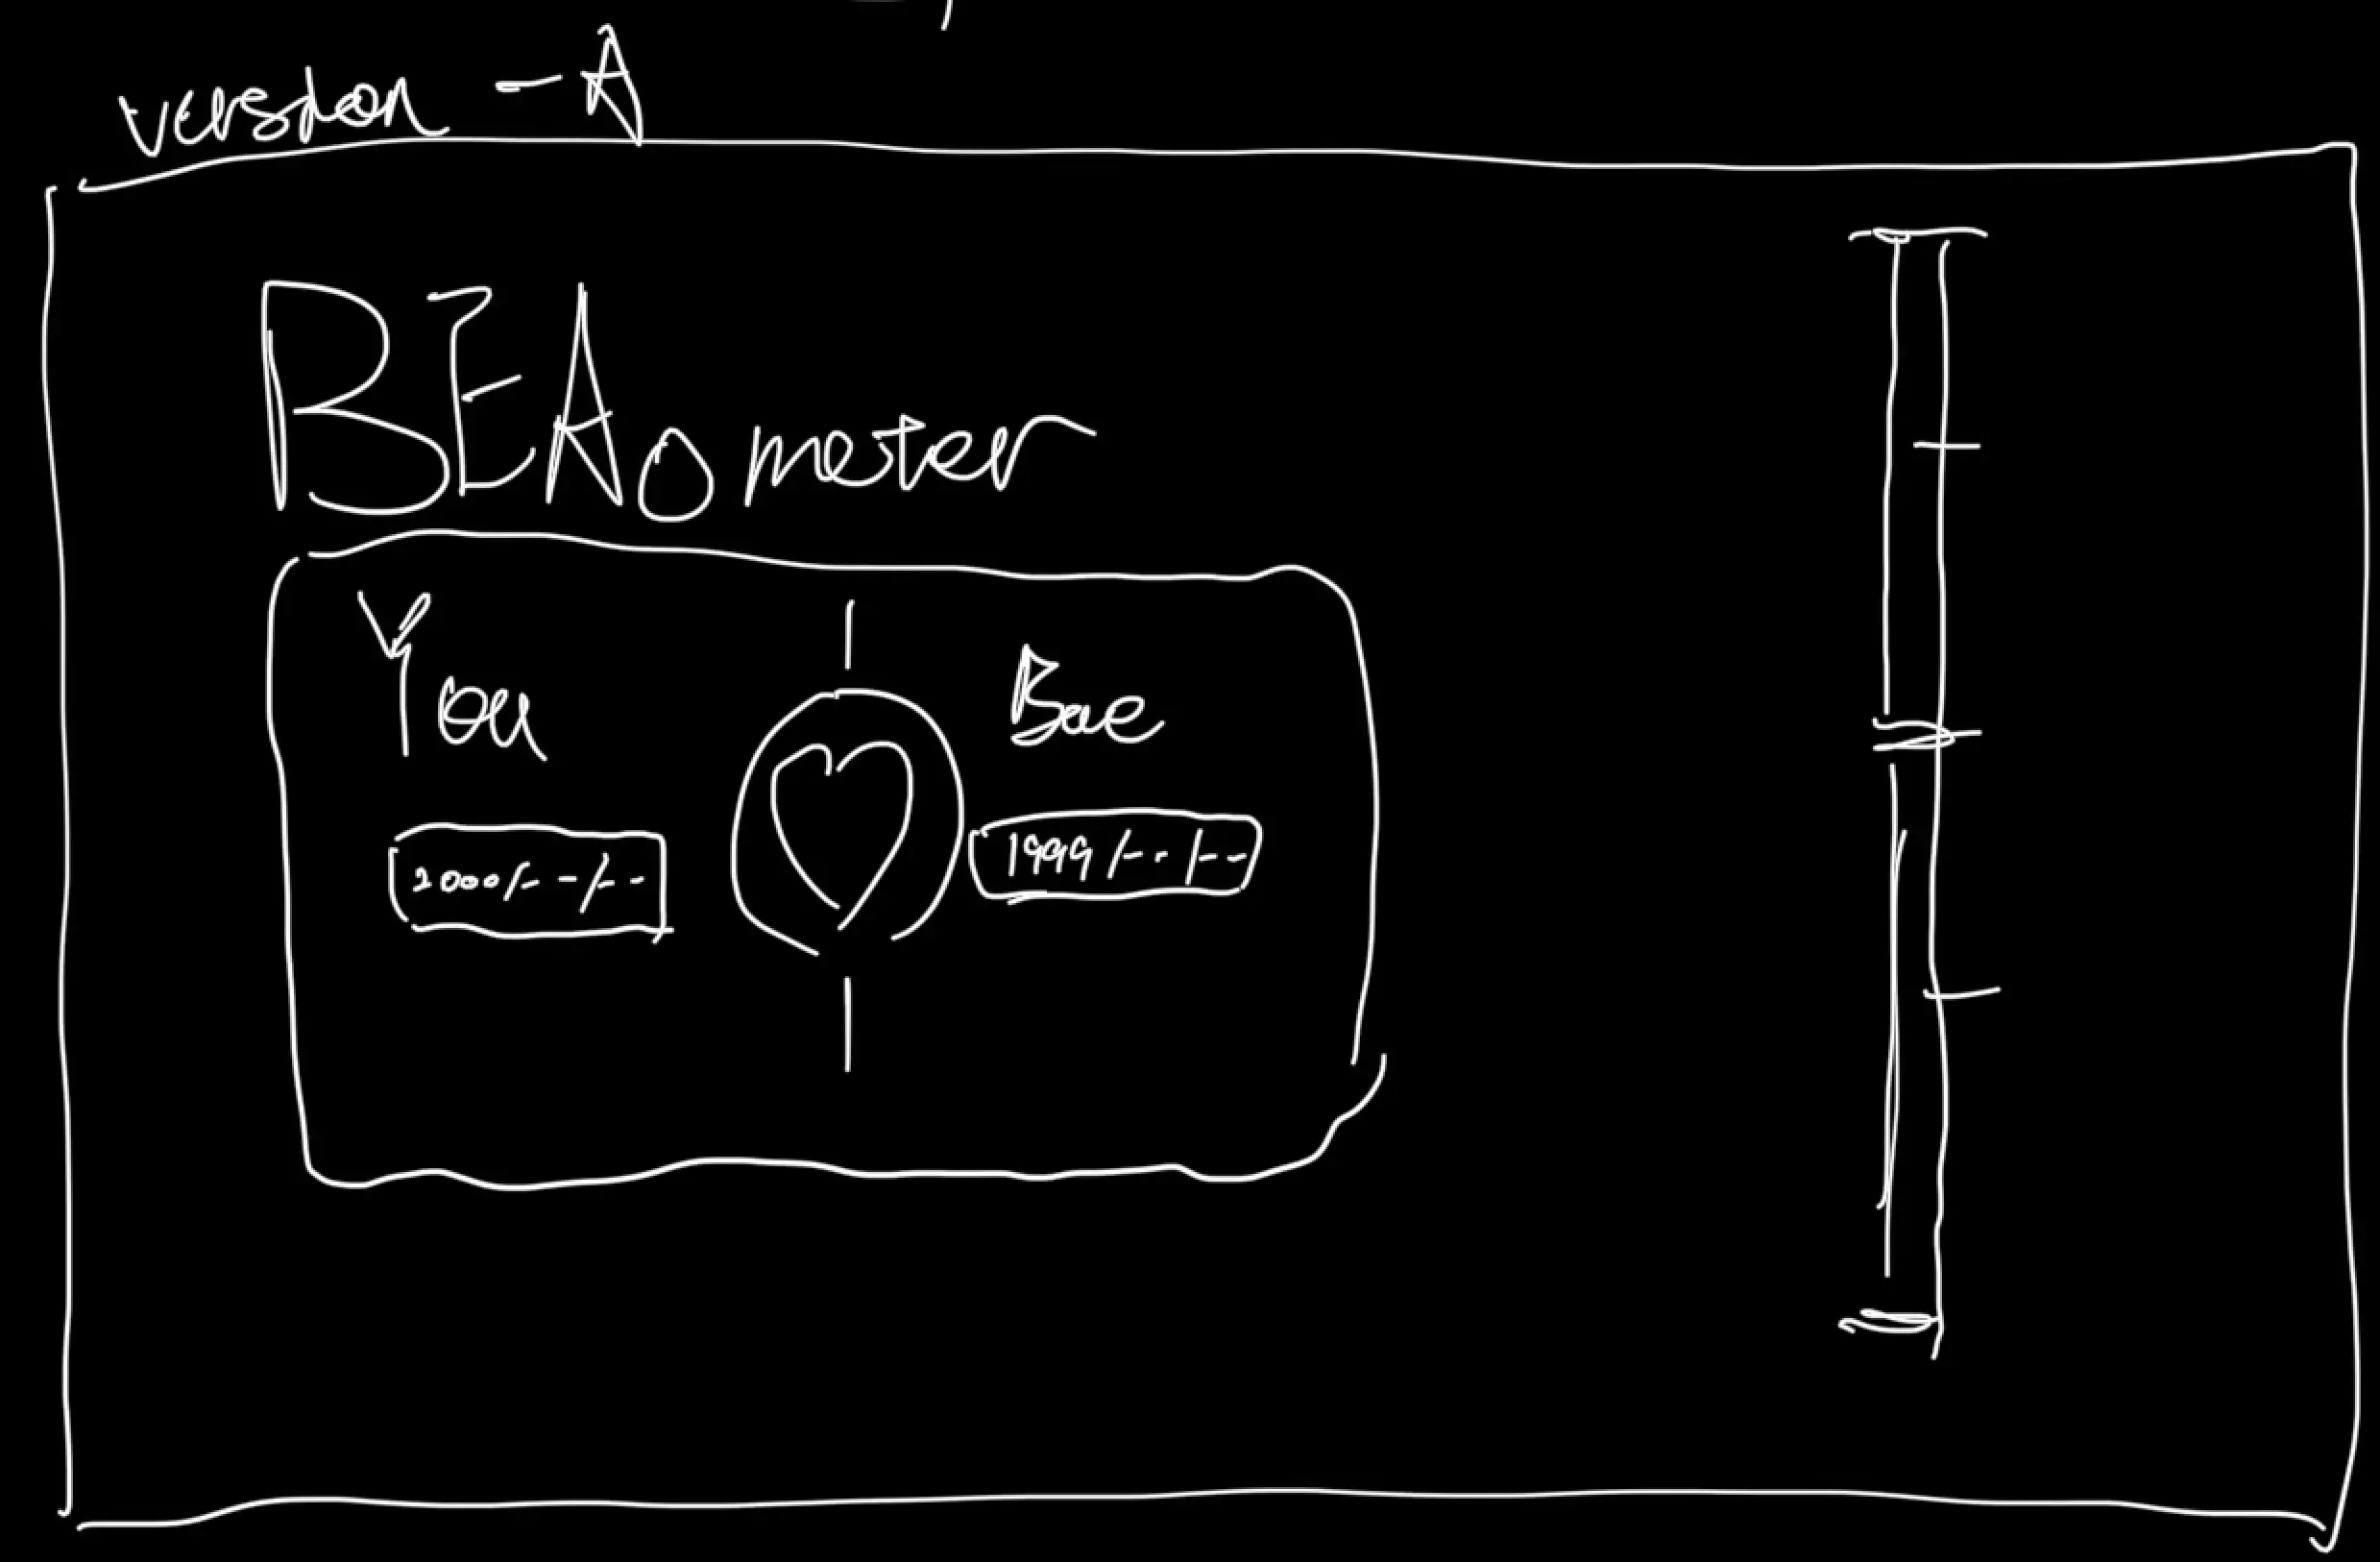 version - A
BEAometer
You
Bae
2000/--/--
1999/--/--